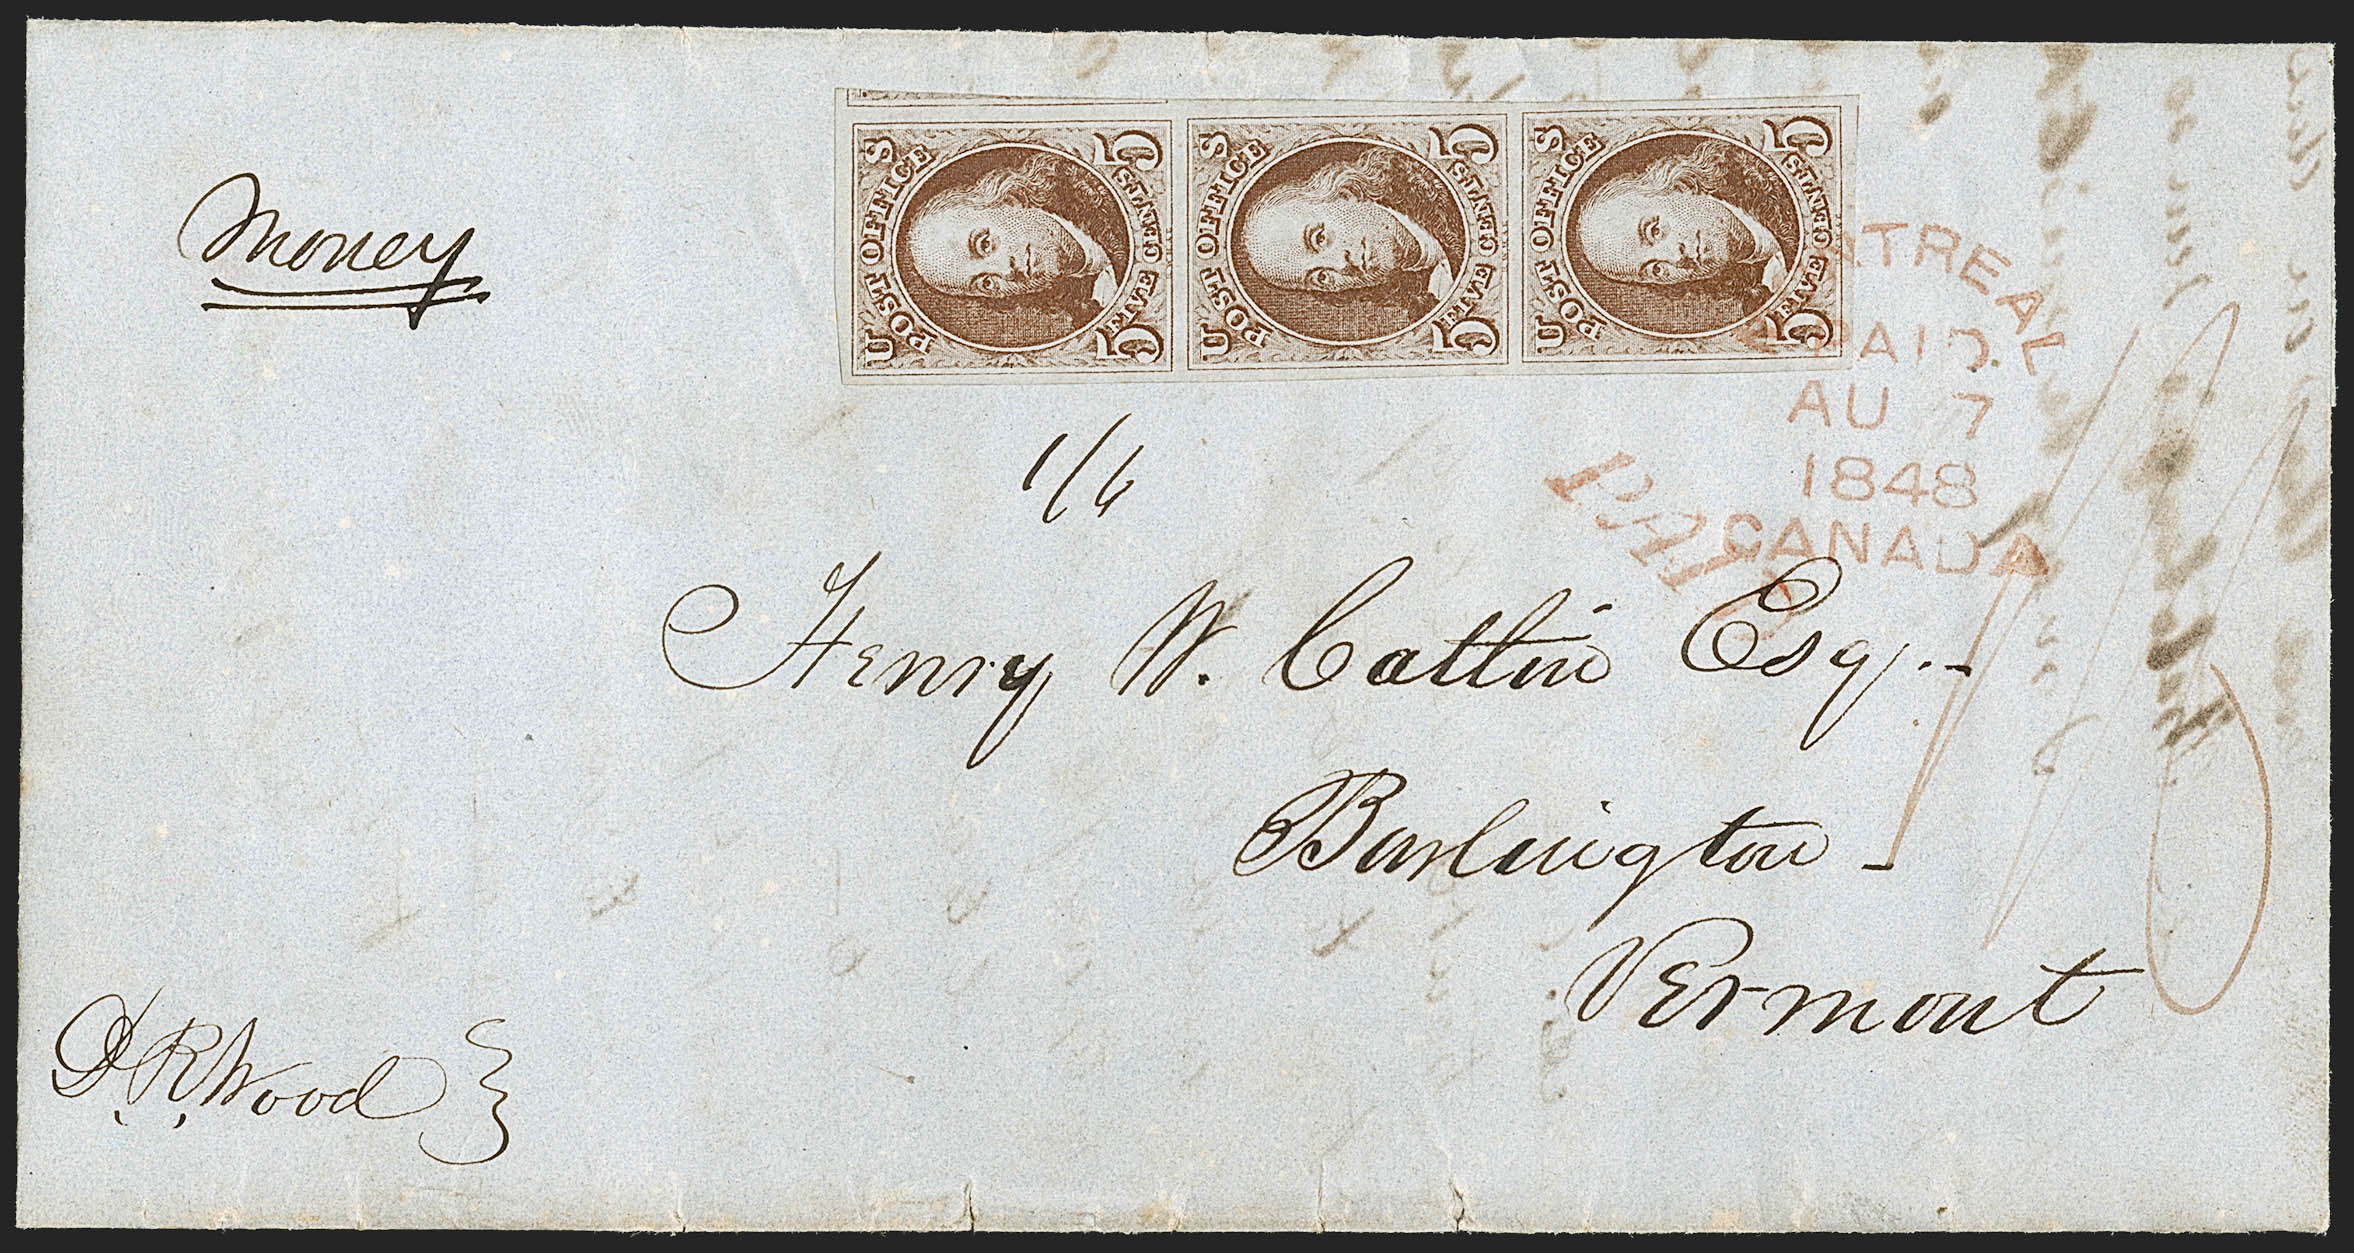 Money
U S
POST OFFICE
FIVE CENTS
5 5
U S
POST OFFICE
FIVE CENTS
5 5
U S
POST OFFICE
FIVE CENTS
5 5
TREAL
PAID.
AU 7
1848
CANADA
PAID
1/6
Henry W. Catlin Esq.
Burlington
Vermont
D. R. Wood